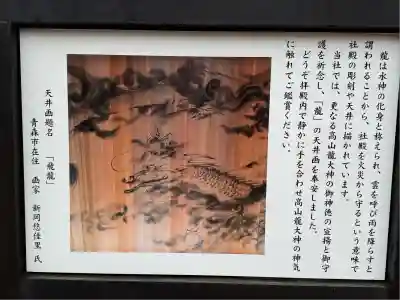 龍は水神の化身と称えられ、雲を呼び雨を降らすと
謂われることから、社殿を火災から守るという意味で
社殿の彫刻や天井に描かれています。
当社では、更なる高山龍大神の御神徳の宣揚と御守
護を祈念し、「龍」の天井画を奉安しました。
どうぞ拝殿内で静かに手を合わせ高山龍大神の神気
に触れてご鑑賞ください。
天井画題名 「飛龍」
青森市在住 画家 新岡悠佳里 氏